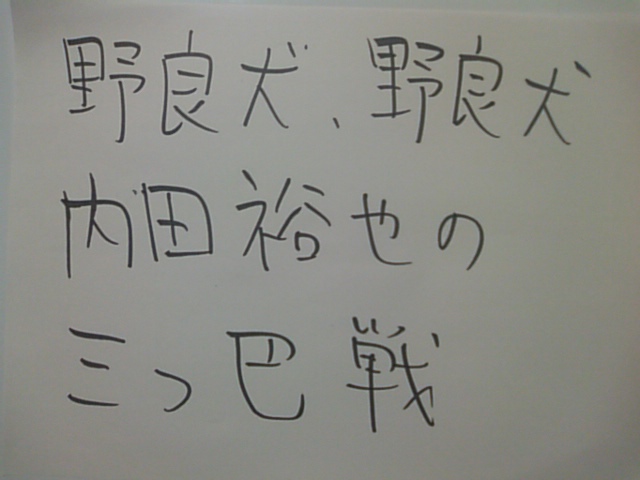 野良犬、野良犬
内田裕也の
三つ巴戦